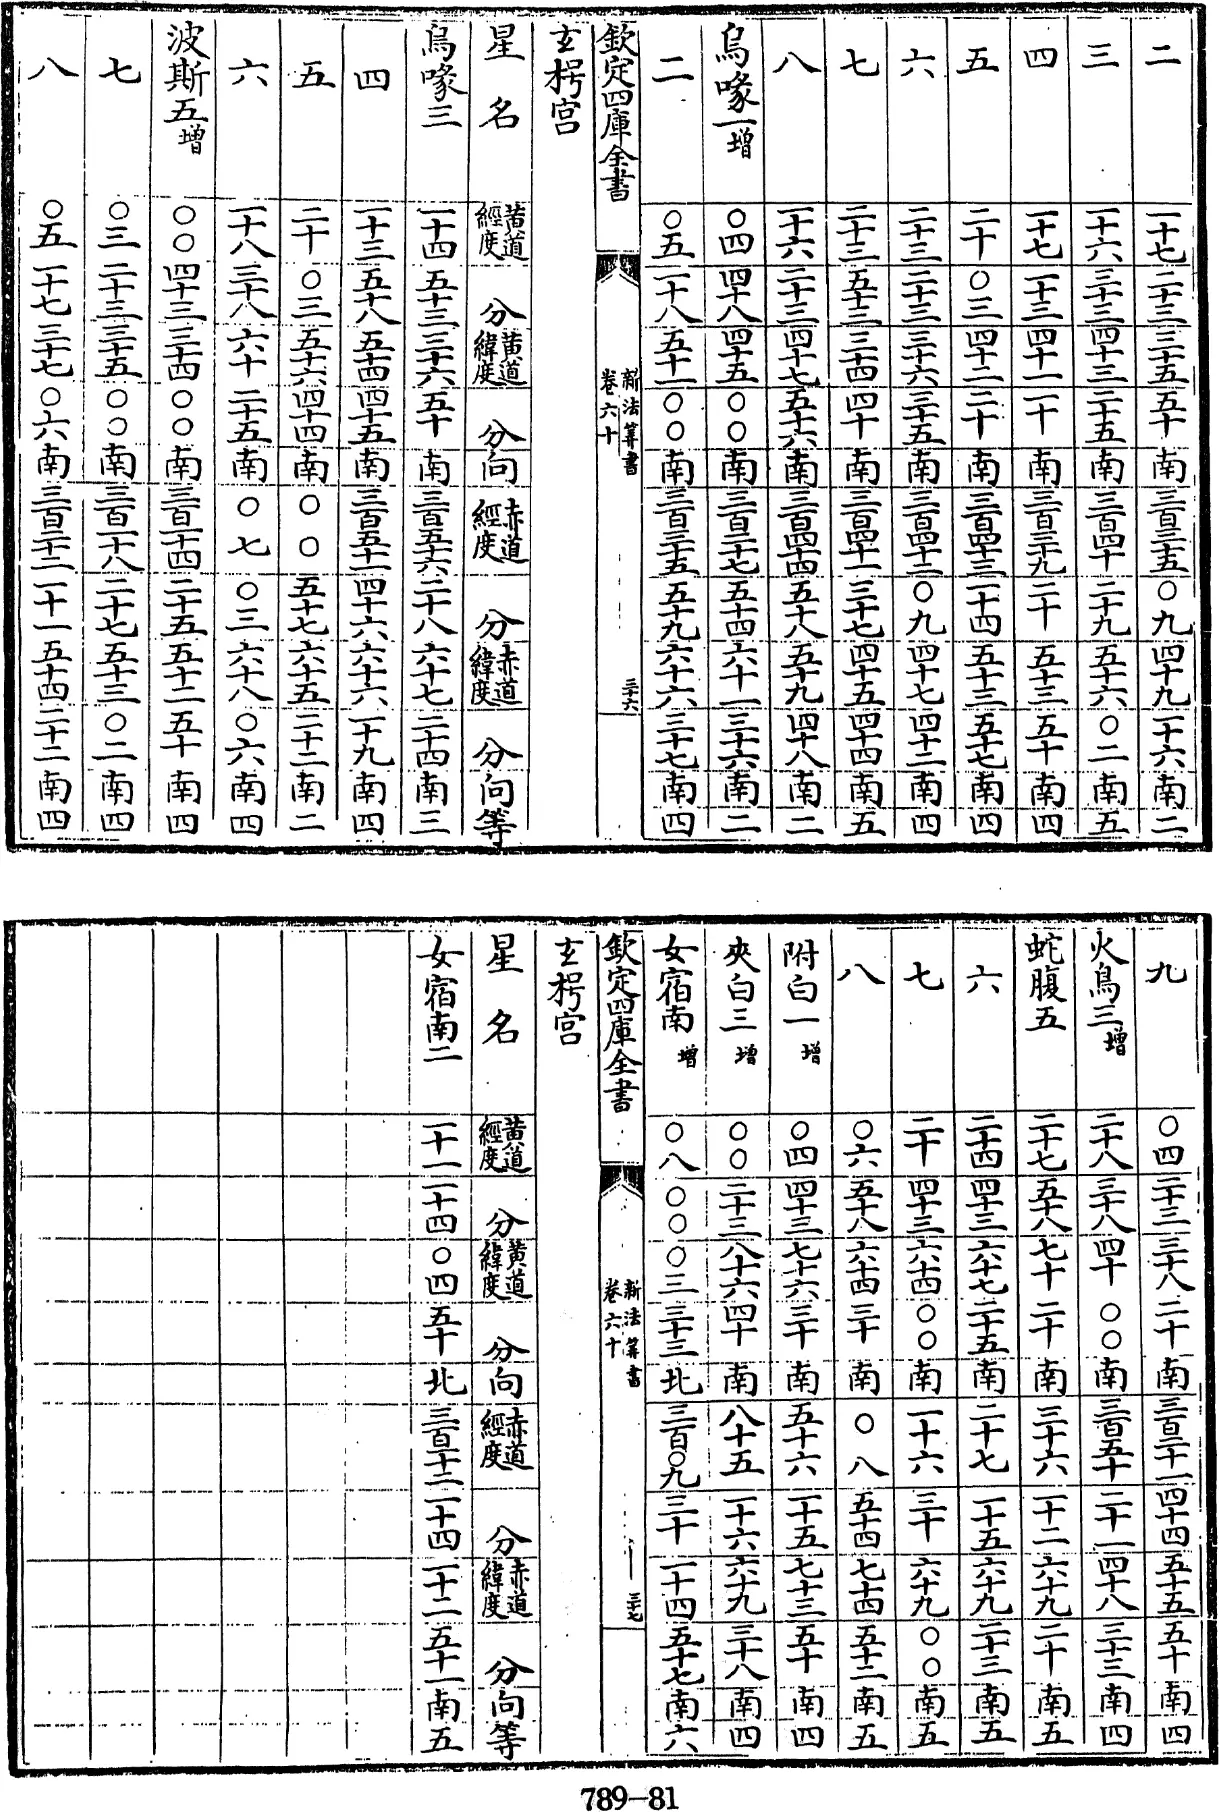 二 一十七 二十三 三十五 五十 南 三百三十五 〇九 四十九 一十六 南 二
三 一十六 三十三 四十三 二十五 南 三百四十 二十九 五十六 〇二 南 五
四 一十七 一十三 四十一 一十 南 三百三十九 二十 五十三 五十 南 四
五 二十 〇三 四十二 二十 南 三百四十三 一十四 五十三 五十七 南 四
六 二十三 二十三 三十六 三十五 南 三百四十二 〇九 四十七 四十二 南 四
七 二十三 五十三 三十四 四十 南 三百四十一 三十七 四十五 四十四 南 五
八 一十六 二十三 四十七 五十六 南 三百四十四 五十八 五十九 四十八 南 二
鳥喙一增 〇四 四十八 四十五 〇〇 南 三百二十七 五十四 六十一 三十六 南 二
二 〇五 一十八 五十一 〇〇 南 三百三十五 五十九 六十六 三十七 南 四
欽定四庫全書 新法算書 卷六十 三十六
玄枵宮
星名 黃道經度 分 黃道緯度 分 向 赤道經度 分 赤道緯度 分 向 等
鳥喙三 一十四 五十三 三十六 五十 南 三百五十六 二十八 六十七 二十四 南 三
四 一十三 五十八 五十四 四十五 南 三百五十一 四十六 六十六 一十九 南 四
五 二十 〇三 五十六 四十四 南 〇〇 五十七 六十五 二十二 南 二
六 一十八 三十八 六十 二十五 南 〇七 〇三 六十八 〇六 南 四
波斯五增 〇〇 四十三 三十四 〇〇 南 三百一十四 二十五 五十二 五十 南 四
七 〇三 二十三 三十五 〇〇 南 三百一十八 二十七 五十三 〇二 南 四
八 〇五 一十七 三十七 〇六 南 三百二十二 一十一 五十四 二十二 南 四
九 〇四 二十三 三十八 二十 南 三百二十一 四十四 五十五 五十 南 四
火鳥三增 二十八 三十八 四十 〇〇 南 三百五十 二十一 四十八 三十三 南 四
蛇腹五 二十七 五十八 七十 二十 南 三十六 一十二 六十九 二十 南 五
六 二十四 四十三 六十七 二十五 南 二十七 一十五 六十九 二十三 南 五
七 二十 四十三 六十四 〇〇 南 一十六 三十 六十九 〇〇 南 五
八 〇六 五十八 六十四 三十 南 〇八 五十四 七十四 五十二 南 五
附白一增 〇四 四十三 七十六 三十 南 五十六 一十五 七十三 五十 南 四
夾白三增 〇〇 二十三 八十六 四十 南 八十五 一十六 六十九 三十八 南 四
女宿南增 〇八 〇〇 〇三 三十三 北 三百〇九 三十 一十四 五十七 南 六
欽定四庫全書 新法算書 卷六十 三十七
玄枵宮
星名 黃道經度 分 黃道緯度 分 向 赤道經度 分 赤道緯度 分 向 等
女宿南二 一十一 一十四 〇四 五十 北 三百一十二 一十四 一十二 五十一 南 五
789-81